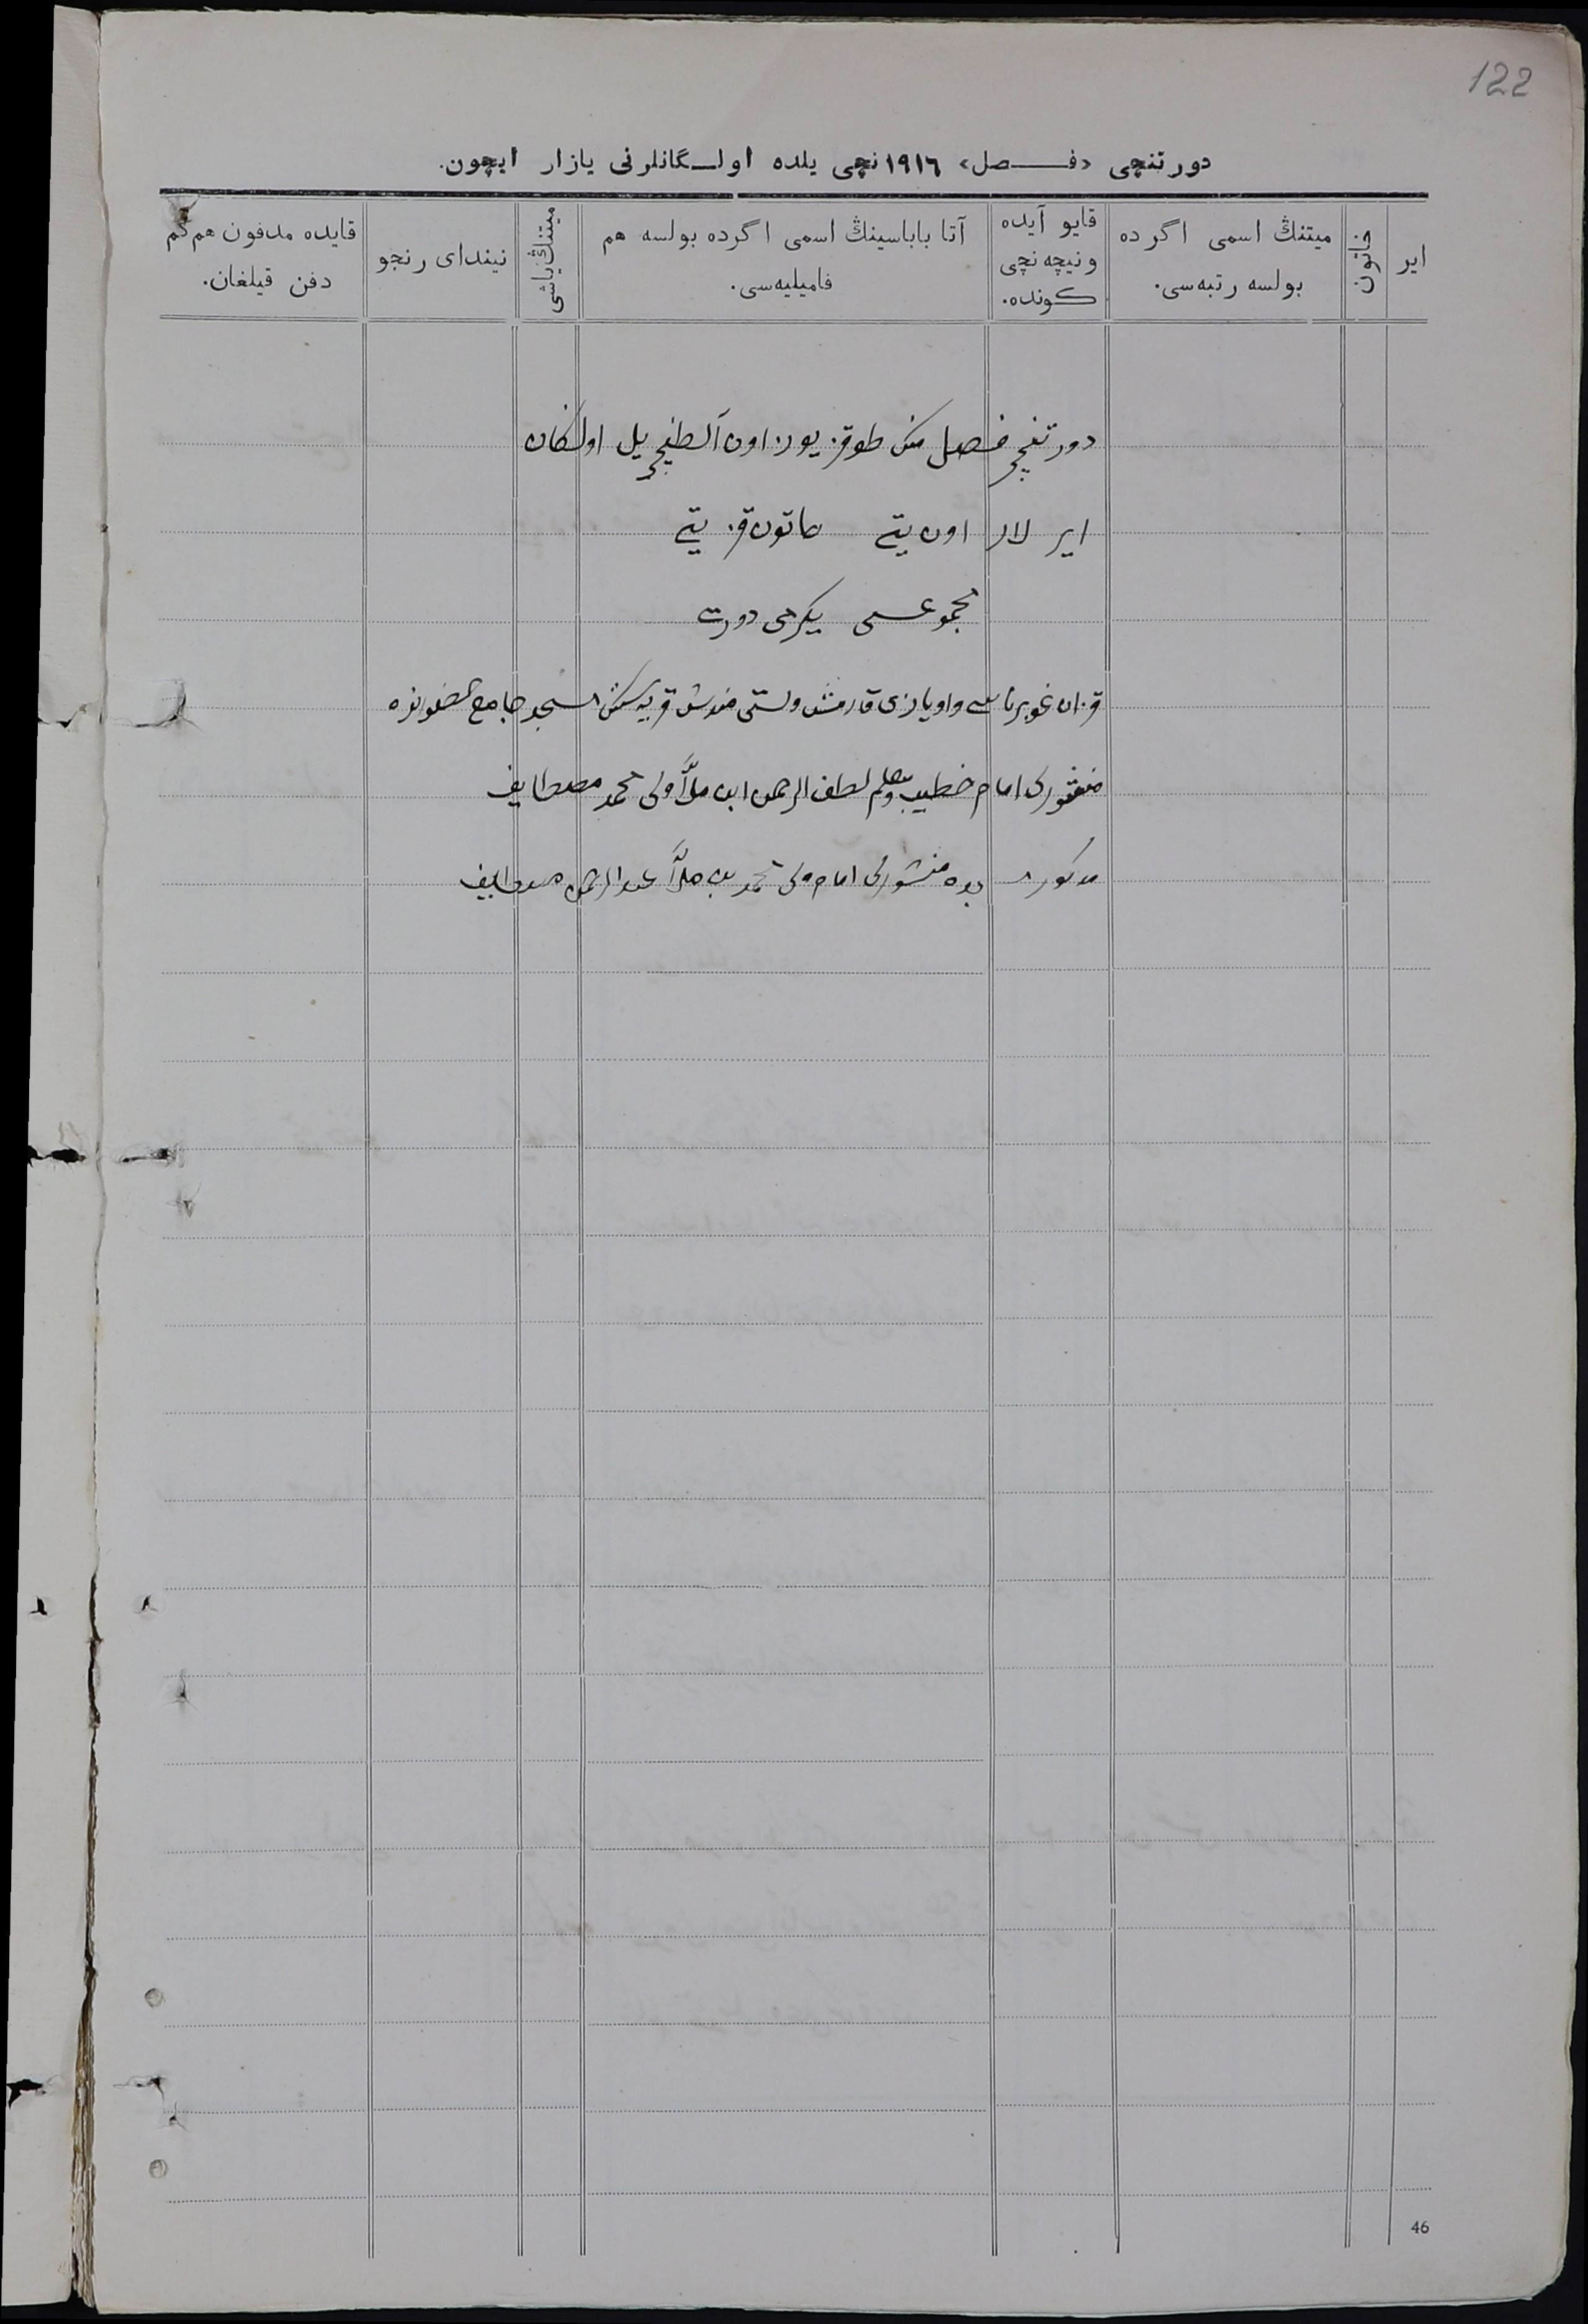 122
دورتنچی «فـصل» ١٩١٦نچی یلده اولـگانلرنی یازار ایچون.
ایر
خاتون
میتنڭ اسمی اگرده
بولسه رتبه‌سی.
قایو آیده
ونیچه‌نچی
کونده.
آتا باباسینڭ اسمی اگرده بولسه هم
فامیلیه‌سی.
میتنڭ یاشی
نیندای رنجو
قایده مدفون هم کم
دفن قیلغان.
دورتنچی فصل منک طوقز یوز اون آلطنچی یل اولکان
ایر لار اون یتی خاتون قز یتی
مجموعسی یکرمی دورت
قزان غوبرناسی ولستی قریه‌سنک مسجد جامع حضورنده
امام خطیب ومعلم لطف الرحمن ابن ملّا ولی محمد
مذکور ده منشورلی امام ولی محمد بن ملّا عبدالرحمن
46